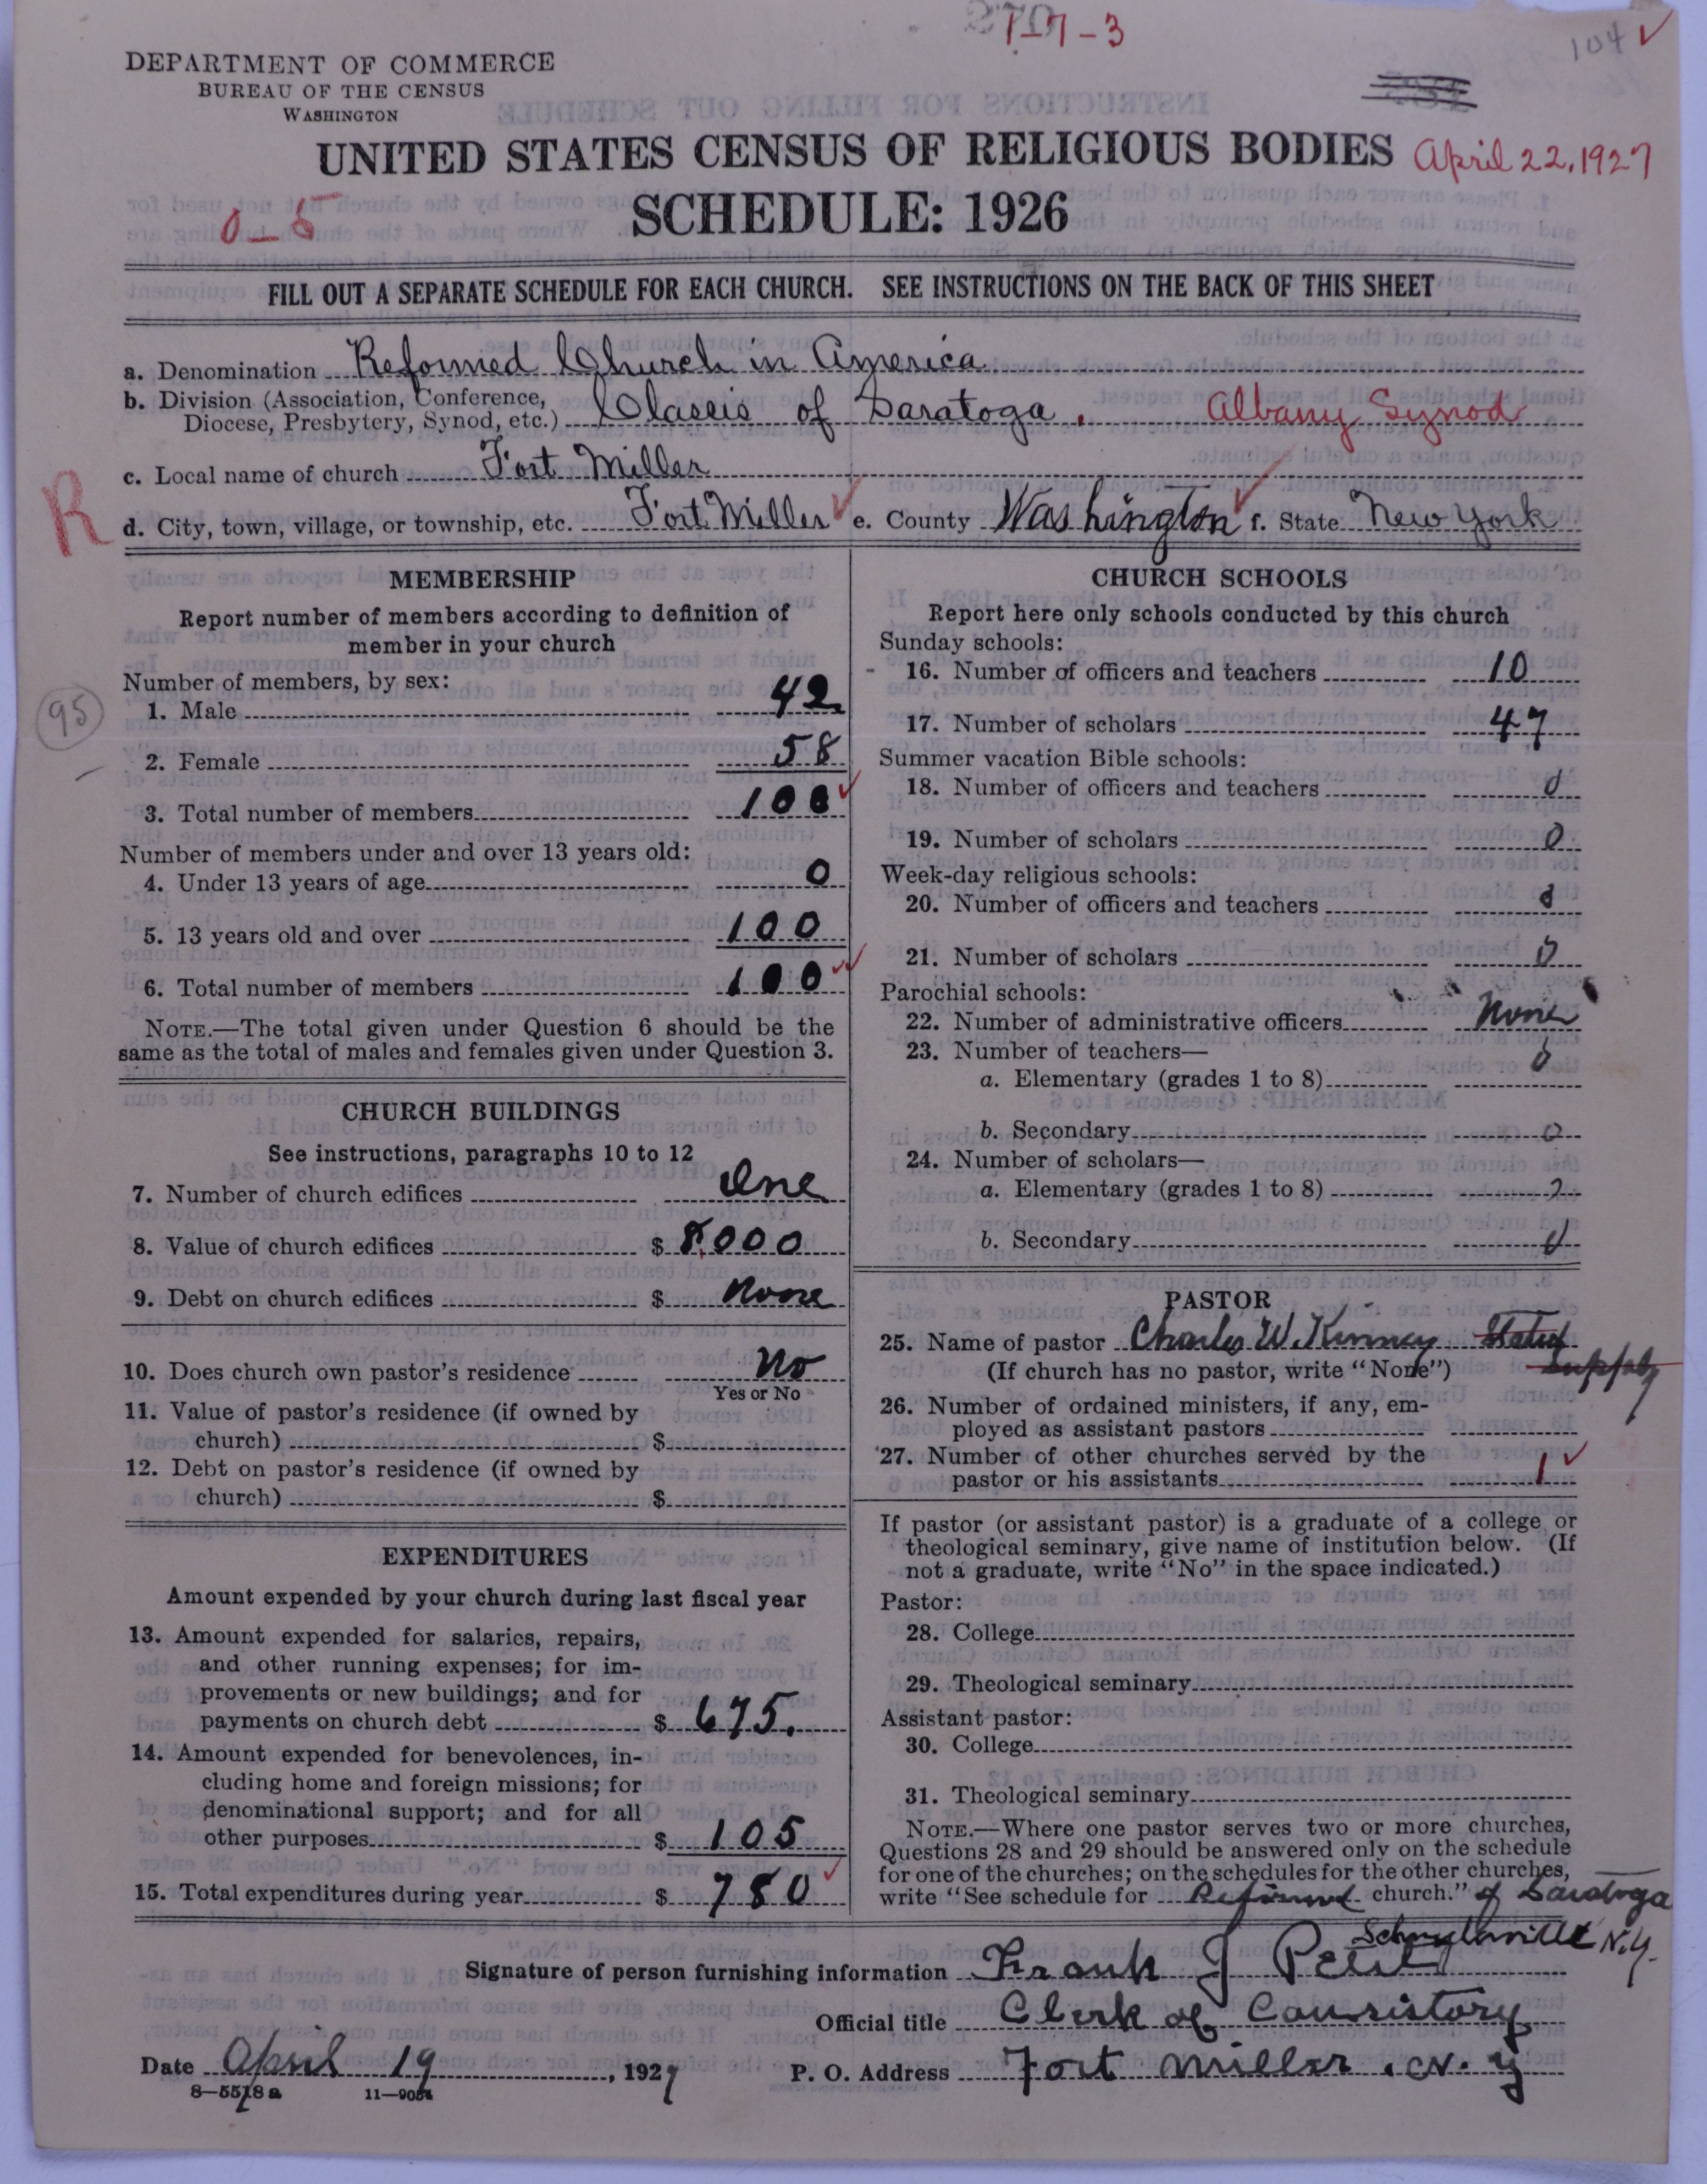 17-3
104
DEPARTMENT OF COMMERCE
BUREAU OF THE CENSUS
WASHINGTON
UNITED STATES CENSUS OF RELIGIOUS BODIES April 22, 1927
SCHEDULE: 1926
0-5
FILL OUT A SEPARATE SCHEDULE FOR EACH CHURCH. SEE INSTRUCTIONS ON THE BACK OF THIS SHEET
a. Denomination Reformed Church in America
b. Division (Association, Conference, Diocese, Presbytery, Synod, etc.) Classis of Saratoga. Albany Synod
c. Local name of church Fort Miller
R
d. City, town, village, or township, etc. Fort Miller e. County Washington f. State New York
MEMBERSHIP
Report number of members according to definition of
member in your church
Number of members, by sex:
95
1. Male 42
2. Female 58
3. Total number of members 100
Number of members under and over 13 years old:
4. Under 13 years of age 0
5. 13 years old and over 100
6. Total number of members 100
NOTE.—The total given under Question 6 should be the
same as the total of males and females given under Question 3.
CHURCH BUILDINGS
See instructions, paragraphs 10 to 12
7. Number of church edifices One
8. Value of church edifices $ 8,000
9. Debt on church edifices $ None
10. Does church own pastor's residence No
Yes or No
11. Value of pastor's residence (if owned by
church) $
12. Debt on pastor's residence (if owned by
church) $
EXPENDITURES
Amount expended by your church during last fiscal year
13. Amount expended for salaries, repairs,
and other running expenses; for im-
provements or new buildings; and for
payments on church debt $ 675.
14. Amount expended for benevolences, in-
cluding home and foreign missions; for
denominational support; and for all
other purposes $ 105
15. Total expenditures during year $ 780
CHURCH SCHOOLS
Report here only schools conducted by this church
Sunday schools:
16. Number of officers and teachers 10
17. Number of scholars 47
Summer vacation Bible schools:
18. Number of officers and teachers 0
19. Number of scholars 0
Week-day religious schools:
20. Number of officers and teachers 0
21. Number of scholars 0
Parochial schools:
22. Number of administrative officers None
23. Number of teachers—
a. Elementary (grades 1 to 8) 0
b. Secondary 0
24. Number of scholars—
a. Elementary (grades 1 to 8)
b. Secondary 0
PASTOR
25. Name of pastor Charles W. Kinney Stated
(If church has no pastor, write "None") Supply
26. Number of ordained ministers, if any, em-
ployed as assistant pastors
27. Number of other churches served by the
pastor or his assistants 1
If pastor (or assistant pastor) is a graduate of a college or
theological seminary, give name of institution below. (If
not a graduate, write "No" in the space indicated.)
Pastor:
28. College
29. Theological seminary
Assistant pastor:
30. College
31. Theological seminary
NOTE.—Where one pastor serves two or more churches,
Questions 28 and 29 should be answered only on the schedule
for one of the churches; on the schedules for the other churches,
write "See schedule for Reformed church." of Saratoga
N.Y.
Signature of person furnishing information Frank J
Official title Clerk of Consistory
Date April 19, 1927 P. O. Address Fort Miller, N. Y
8—5518a 11—9054